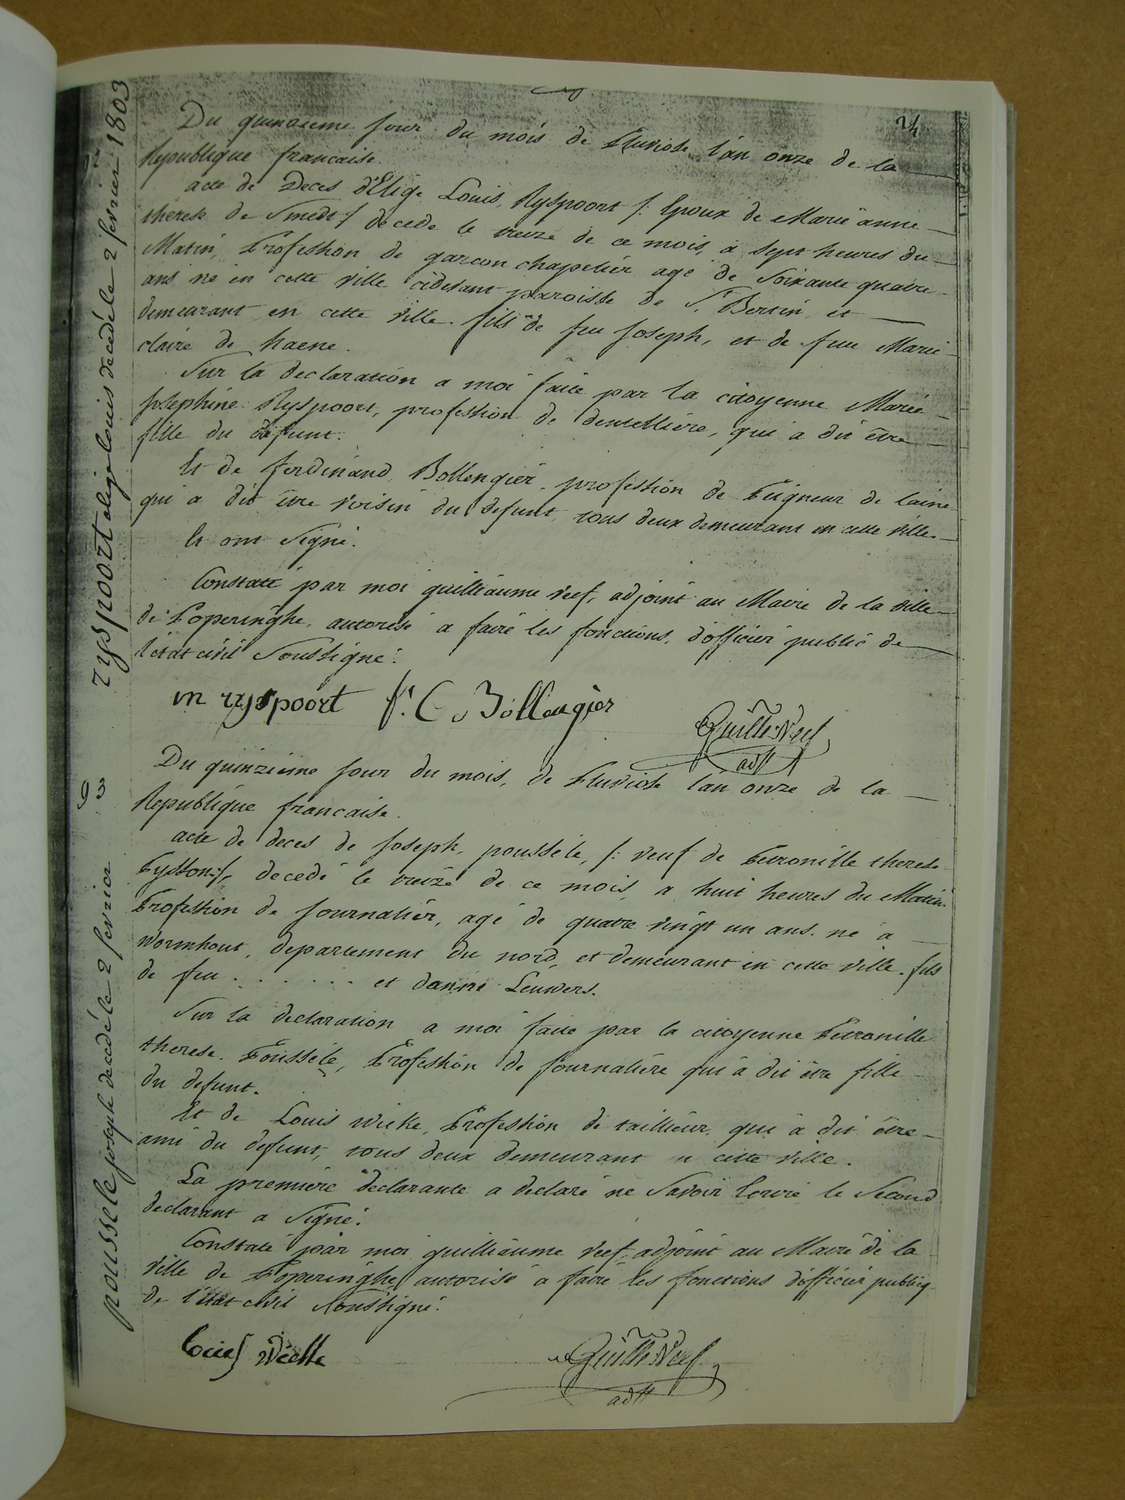 24
Du quinzieme jour du mois de Pluviose l'an onze de la
Republique francaise.
acte de Deces d'Elige Louis Ryspoort /: Epoux de Marie anne
therese de Smedt :/ decede le treize de ce mois, a sept heures du
Matin, Profession de garcon chapelier agé de Soixante quatre
ans né en cette ville cidevant paroisse de St. Bertin et
demeurant en cette ville. fils de feu Joseph, et de feue Marie
claire de haene.
Sur la declaration a moi faite par la citoyenne Marie
Josephine Ryspoort, profession de dentelliere, qui a dit être
fille du defunt.
Et de ferdinand Bollengier profession de Peigneur de laine
qui a dit être voisin du defunt, tous deux demeurant en cette ville.
Et ont Signé.
Constaté par moi guilliaume Neef, adjoint au Maire de la ville
de Poperinghe, autorisé a faire les fonctions, d'officier public de
l'état civil Soussigné.
m ryspoort f. C. Bollengier
Guille. Neef
adjt
Du quinzieme jour du mois, de Pluviose l'an onze de la
Republique francaise.
acte de deces de Joseph pousséle, /: veuf de Petronille therese
Pysson :/, decedé le treize de ce mois, a huit heures du Matin
Profession de Journalier, agé de quatre vingt un ans. né a
Wormhout, departement du nord, et demeurant en cette ville. fils
de feu . . . . . . et d'anne Leuwers.
Sur la declaration a moi faite par la citoyenne Petronille
therese Pousséle, Profession de Journaliere qui a dit être fille
du defunt.
Et de Louis wicke, Profession de tailleur, qui a dit être
ami du defunt, tous deux demeurant n cette ville.
La premiere declarante a declaré ne Savoir Ecrire le Second
declarant a Signé.
Constaté par moi guilliaume Neef, adjoint au Maire de la
ville de Poperinghe, autorisé a faire les fonctions d'officier publiq
de l'état civil Soussigné.
Guille. Neef
adjt
ryspoort elige louis decédé le 2 fevrier 1803
93
pousséle joseph decédé le 2 fevrier